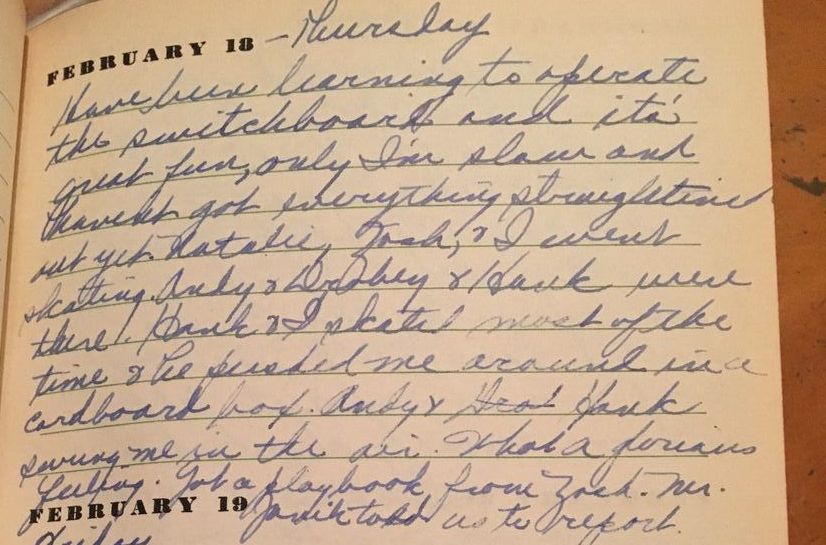 FEBRUARY 18 - Thursday
Have been learning to operate
the switchboard and it's
great fun, only I'm slow and
haven't got everything straightened
out yet. Natalie, Zosh, & I went
skating. Andy & & Hank were
there. Hank & I skated most of the
time & he pushed me around in a
cardboard box. Andy & Hank
swung me in the air. What a
feeling. Got a playbook from Zosh. Mr.
told us to report.
FEBRUARY 19
Friday